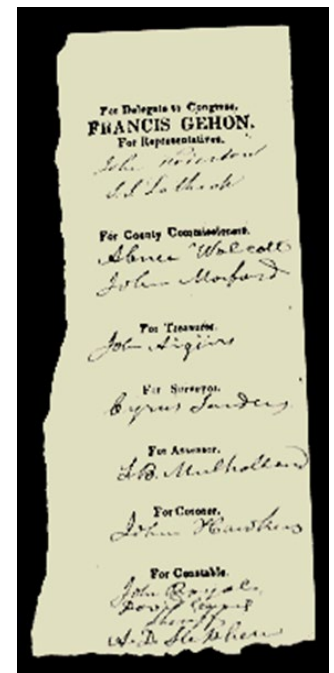 For Delegate to Congress,
FRANCIS GEHON.
For Representatives.
John
For County Commissioners.
Abner Wolcott
John Morford
For Treasurer.
John
For Surveyor.
Cyrus Sanders
For Assessor.
S.B. Mulholland
For Coroner.
John Hawkins
For Constable.
John Royal
A.D. Stephen